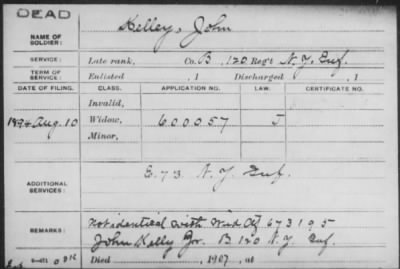 DEAD
NAME OF SOLDIER: Kelley, John
SERVICE: Late rank, Co. B, 120 Reg't N.Y. Inf.
TERM OF SERVICE: Enlisted , 1 Discharged , 1
DATE OF FILING. CLASS. APPLICATION NO. LAW. CERTIFICATE NO.
Invalid,
Aug. 10 Widow, 600057
Minor,
ADDITIONAL SERVICES: E. 73 N.Y. Inf.
REMARKS: Not identical with Wid Ctf 673195
John Kelly B 120 N.Y. Inf.
Died , 190 , at